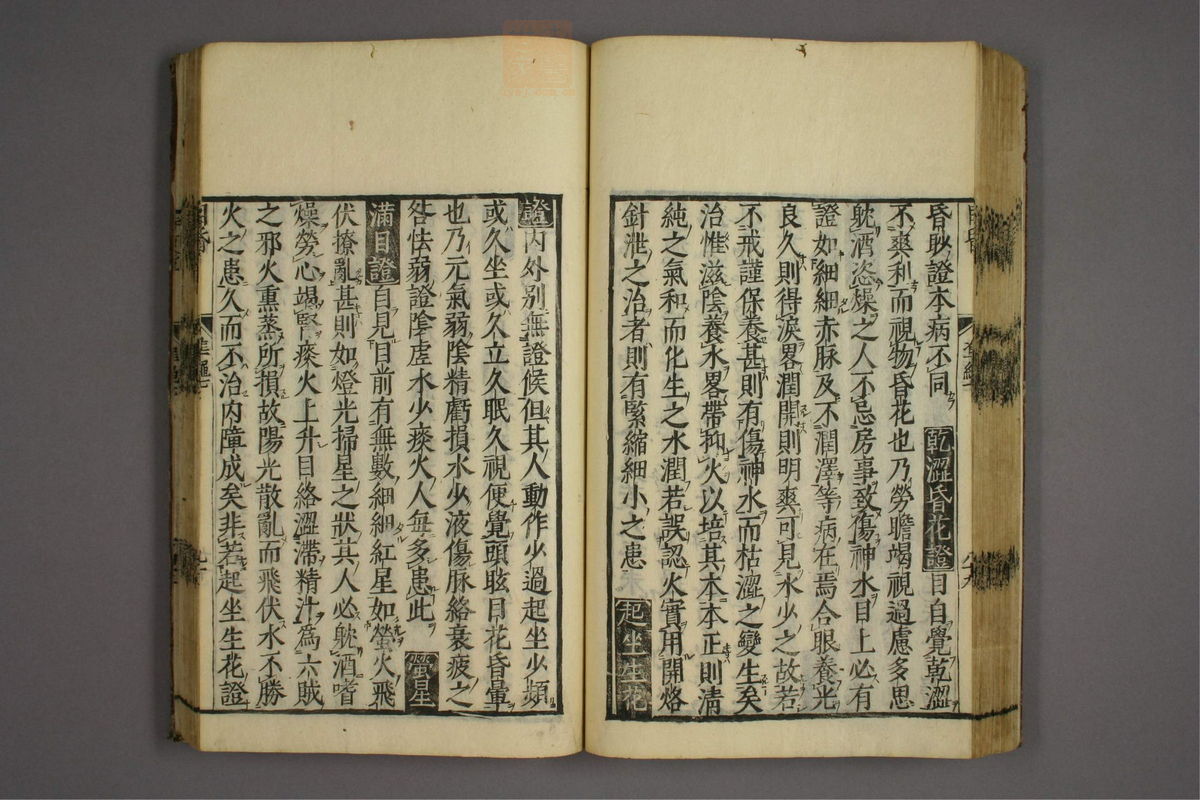 昏眇證本病不同　乾澀昏花證　目自覺乾澀
不爽利而視物昏花也乃勞瞻竭視過慮多思
躭酒恣燥之人不忌房事致傷神水目上必有
證如細細赤脉及不潤澤等病在焉合眼養光
良久則得淚畧潤開則明爽可見水少之故若
不戒謹保養甚則有傷神水而枯澀之變生矣
治惟滋陰養水畧帶抑火以培其本本正則清
純之氣和而化生之水潤若誤認火實用開烙
針泄之治者則有緊縮細小之患　起坐生花
證　內外別無證候但其人動作少過起坐少頻
或久坐或久立久眠久視便覺頭眩目花昏暈
也乃元氣弱陰精虧損水少液傷脉絡衰疲之
咎怯弱證陰虛水少痰火人每多患此　螢星
滿目證　自見目前有無數細細紅星如螢火飛
伏撩亂甚則如燈光掃星之狀其人必躭酒嗜
燥勞心竭腎痰火上升目絡澀滯精汁爲六賊
之邪火熏蒸所損故陽光散亂而飛伏水不勝
火之患久而不治內障成矣非若起坐生花證